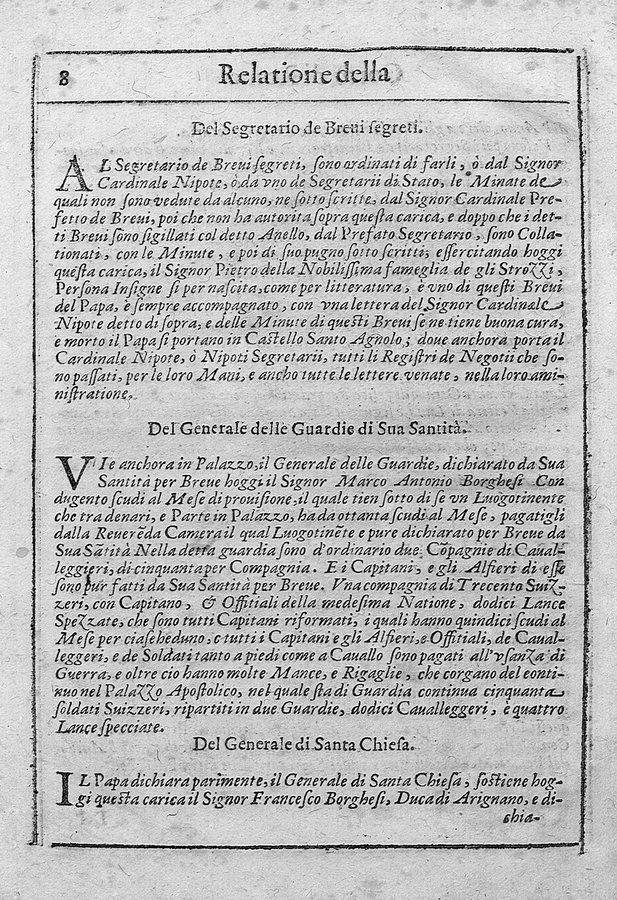 8 Relatione della
Del Segretario de Breui segreti.
AL Segretario de Breui segreti, sono ordinati di farli, ò dal Signor
Cardinale Nipote, ò da vno de Segretarii di Stato, le Minate de
quali non sono vedute da alcuno, ne sotto scritte, dal Signor Cardinale Pre-
fetto de Breui, poi che non ha autorita sopra questa carica, e doppo che i det-
ti Breui sono sigillati col detto Anello, dal Prefato Segretario, sono Colla-
tionati, con le Minute, e poi di suo pugno sotto scritti; essercitando hoggi
questa carica, il Signor Pietro della Nobilissima fameglia de gli Strozzi,
Persona Insigne si per nascita, come per litteratura, è vno di questi Breui
del Papa, è sempre accompagnato, con vna lettera del Signor Cardinale
Nipote detto di sopra, e delle Minute di questi Breui se ne tiene buona cura,
e morto il Papa si portano in Castello Santo Agnolo; doue anchora porta il
Cardinale Nipote, ò Nipoti Segretarii, tutti li Registri de Negotii che so-
no passati, per le loro Mani, e ancho tutte le lettere venate, nella loro ami-
nistratione.
Del Generale delle Guardie di Sua Santità.
VIe anchora in Palazzo, il Generale delle Guardie, dichiarato da Sua
Santità per Breue hoggi il Signor Marco Antonio Borghesi Con
dugento scudi al Mese di prouisione, il quale tien sotto di se vn Luogotinente
che tra denari, e Parte in Palazzo, ha da ottanta scudi al Mese, pagatigli
dalla Reuerẽda Camera il qual Luogotinẽte e pure dichiarato per Breue da
Sua Sãtità Nella detta guardia sono d'ordinario due Cõpagnie di Caual-
leggieri, di cinquanta per Compagnia. E i Capitani, e gli Alfieri di esse
sono pur fatti da Sua Santità per Breue. Vna compagnia di Trecento Suiz-
zeri, con Capitano, & Offitiali della medesima Natione, dodici Lance
Spezzate, che sono tutti Capitani riformati, i quali hanno quindici scudi al
Mese per ciascheduno, e tutti i Capitani e gli Alfieri, e Offitiali, de Caual-
leggeri, e de Soldati tanto a piedi come a Cauallo sono pagati all'vsanza di
Guerra, e oltre cio hanno molte Mance, e Rigaglie, che corgano del conti-
nuo nel Palazzo Apostolico, nel quale sta di Guardia continua cinquanta
soldati Suizzeri, ripartiti in due Guardie, dodici Caualleggeri, è quattro
Lance specciate.
Del Generale di Santa Chiesa.
IL Papa dichiara parimente, il Generale di Santa Chiesa, sostiene hog-
gi questa carica il Signor Francesco Borghesi, Duca di Arignano, e di-
chia-